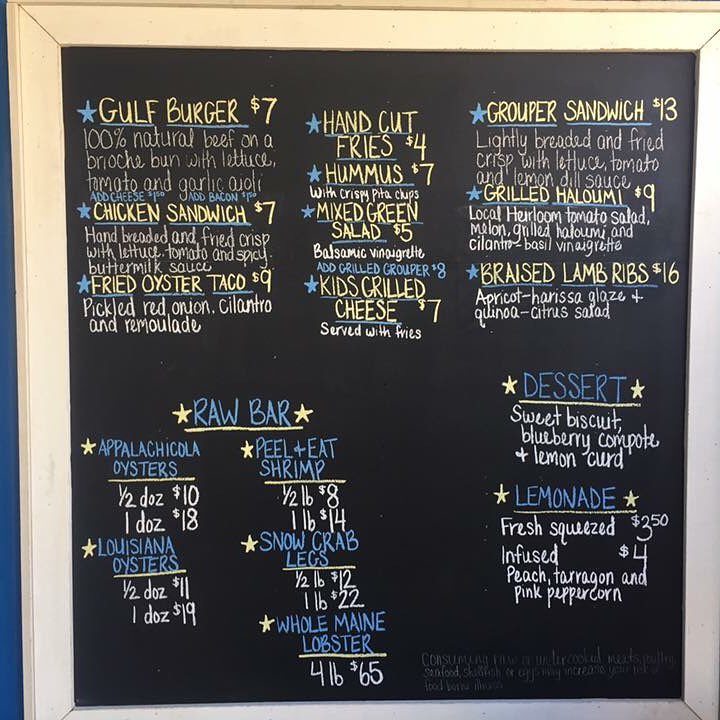 GULF BURGER $7
100% natural beef on a
brioche bun with lettuce,
tomato and garlic aioli
ADD CHEESE $1.00 ADD BACON $1.50
CHICKEN SANDWICH $7
Hand breaded and fried crisp
with lettuce, tomato and spicy
buttermilk sauce
FRIED OYSTER TACO $9
Pickled red onion, cilantro
and remoulade
HAND CUT
FRIES $4
HUMMUS $7
With Crispy Pita chips
MIXED GREEN
SALAD $5
Balsamic vinaigrette
ADD GRILLED GROUPER $8
KIDS GRILLED
CHEESE $7
Served with fries
GROUPER SANDWICH $13
Lightly breaded and fried
crisp with lettuce, tomato
and lemon dill sauce
GRILLED HALOUMI $9
Local Heirloom tomato salad,
melon, grilled haloumi and
cilantro-basil vinaigrette
BRAISED LAMB RIBS $16
Apricot-harissa glaze +
quinoa-citrus salad
RAW BAR
APPALACHICOLA
OYSTERS
1/2 doz $10
1 doz $18
LOUISIANA
OYSTERS
1/2 doz $11
1 doz $19
PEEL + EAT
SHRIMP
1/2 lb $8
1 lb $14
SNOW CRAB
LEGS
1/2 lb $12
1 lb $22
WHOLE MAINE
LOBSTER
4 lb $65
DESSERT
Sweet biscuit,
blueberry compote
+ lemon curd
LEMONADE
Fresh squeezed $3.50
Infused $4
Peach, tarragon and
pink peppercorn
Consuming raw or undercooked meats, poultry,
seafood, shellfish or eggs may increase your risk of
food borne illness